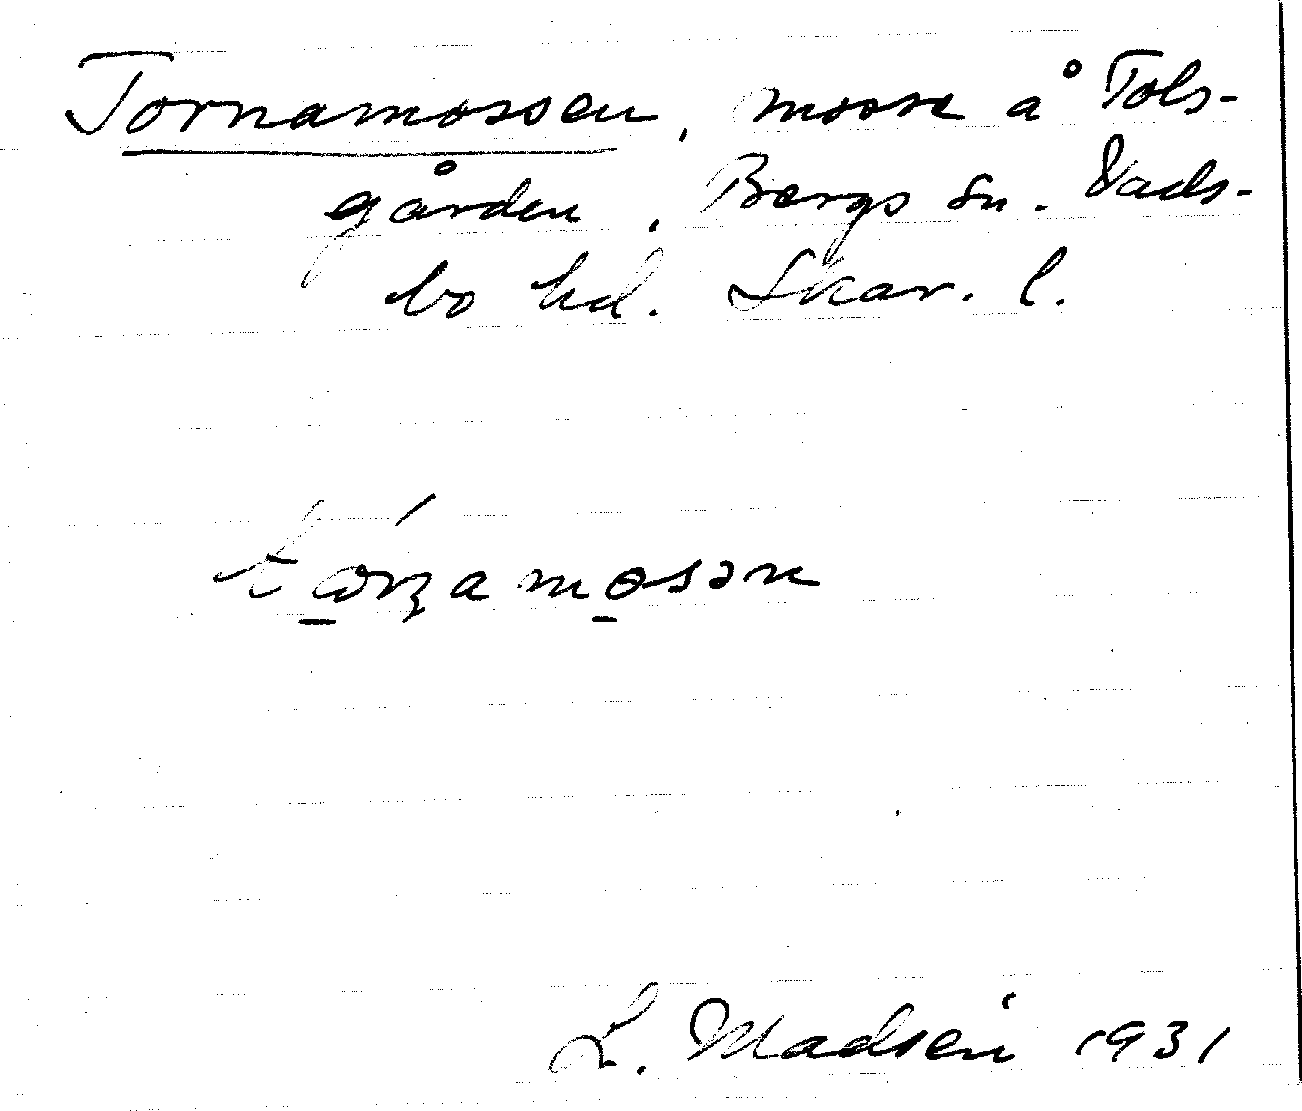 Tornamossen, mosse å Tols-
gården, Bergs sn. Vads-
bo hd. Skar. l.
L. Madsén 1931